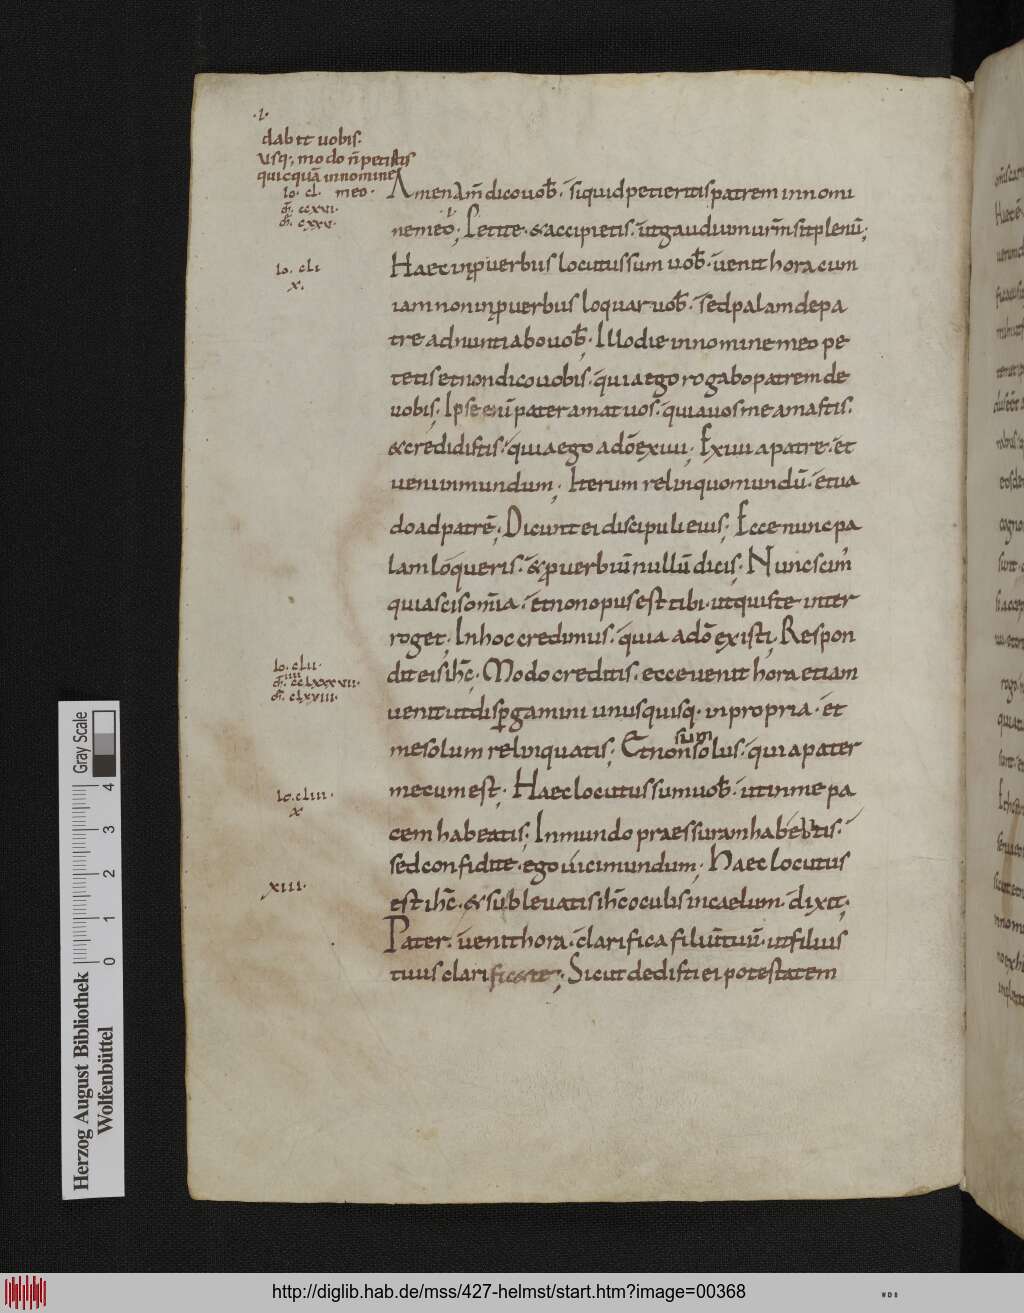 ·/·
dabit uobis·
Usq; modo n̄ petistis
quicquā in nomine
meo·
Io· cl·
m̄· ccxvi·
m̄· cxxv·
Amen Am̄ dico uob̄· siquid petieritis patrem in nomi
ne meo·/· Petite· & accipietis· ut gaudium urm̄ sit plenū;
Io· cli
x·
Haec in ꝓuerbus locutus sum uob̄· uenit hora cum
iam non in ꝓuerbus loquar uob̄· sed palam de pa
tre adnuntiabo uob̄· Illo die in nomine meo pe
tetis et non dico uobis· quia ego rogabo patrem de
uobis; Ipse enī pater amat uos· quia uos me amastis·
& credidistis· quia ego a dō exiui; Exiui a patre· et
ueni in mundum; Iterum relinquo mundū· et ua
do ad patrē; Dicunt ei discipuli eius; Ecce nunc pa
lam loqueris· & ꝓuerbiū nullū dicis; Nunc scim'
quia scis om̄ia· et non opus est tibi· ut quis te inter
roget; In hoc credimus· quia a dō existi; Respon
Io· clii·
m̄· cclxxxvii·
iiii
m̄· clxviii·
dit eis ih̄c; Modo creditis· ecce uenit hora etiam
uenit ut disꝑgamini unusquisq· in propria· et
me solum relinquatis; Et non sum solus· quia pater
Io· cliii·
x
mecum est; Haec locutus sum uob̄· ut in me pa
cem habeatis; In mundo praessuram habebitis·
sed confidite· ego uici mundum; Haec locutus
xiii·
est ih̄c· & subleuatis ih̄c oculis in caelum· dixit·
Pater· uenit hora· clarifica filiū tuū· ut filius
tuus clarificet te; Sicut dedisti ei potestatem
Gray Scale
0 1 2 3 4
Herzog August Bibliothek
Wolfenbüttel
http://diglib.hab.de/mss/427-helmst/start.htm?image=00368